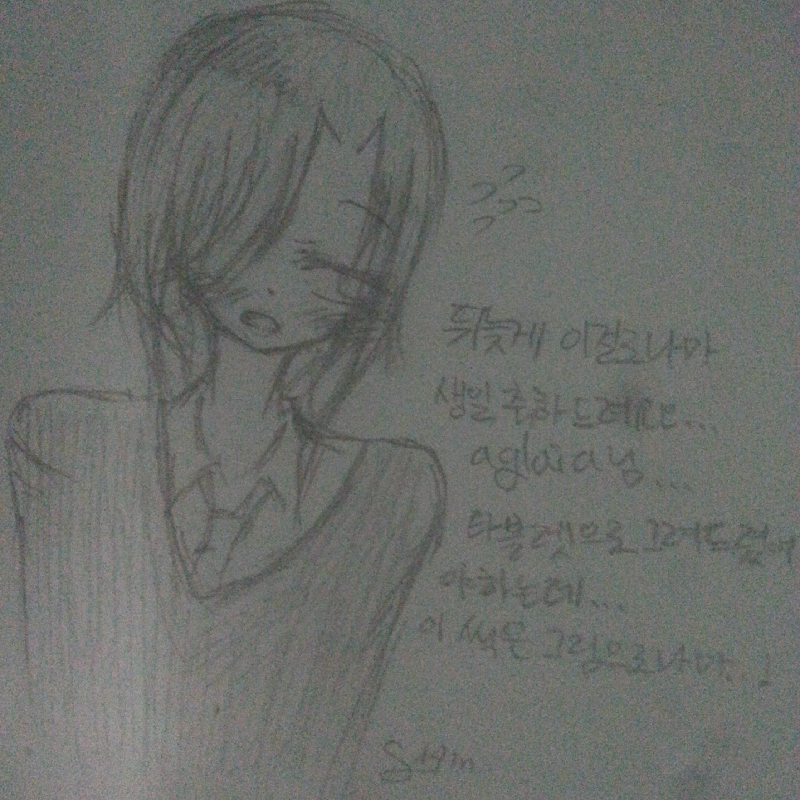 뒤늦게 이걸로나마
생일 축하드려요...
aglaia님...
타블렛으로 그려드렸어
야하는데...
이 썩은 그림으로나마..!